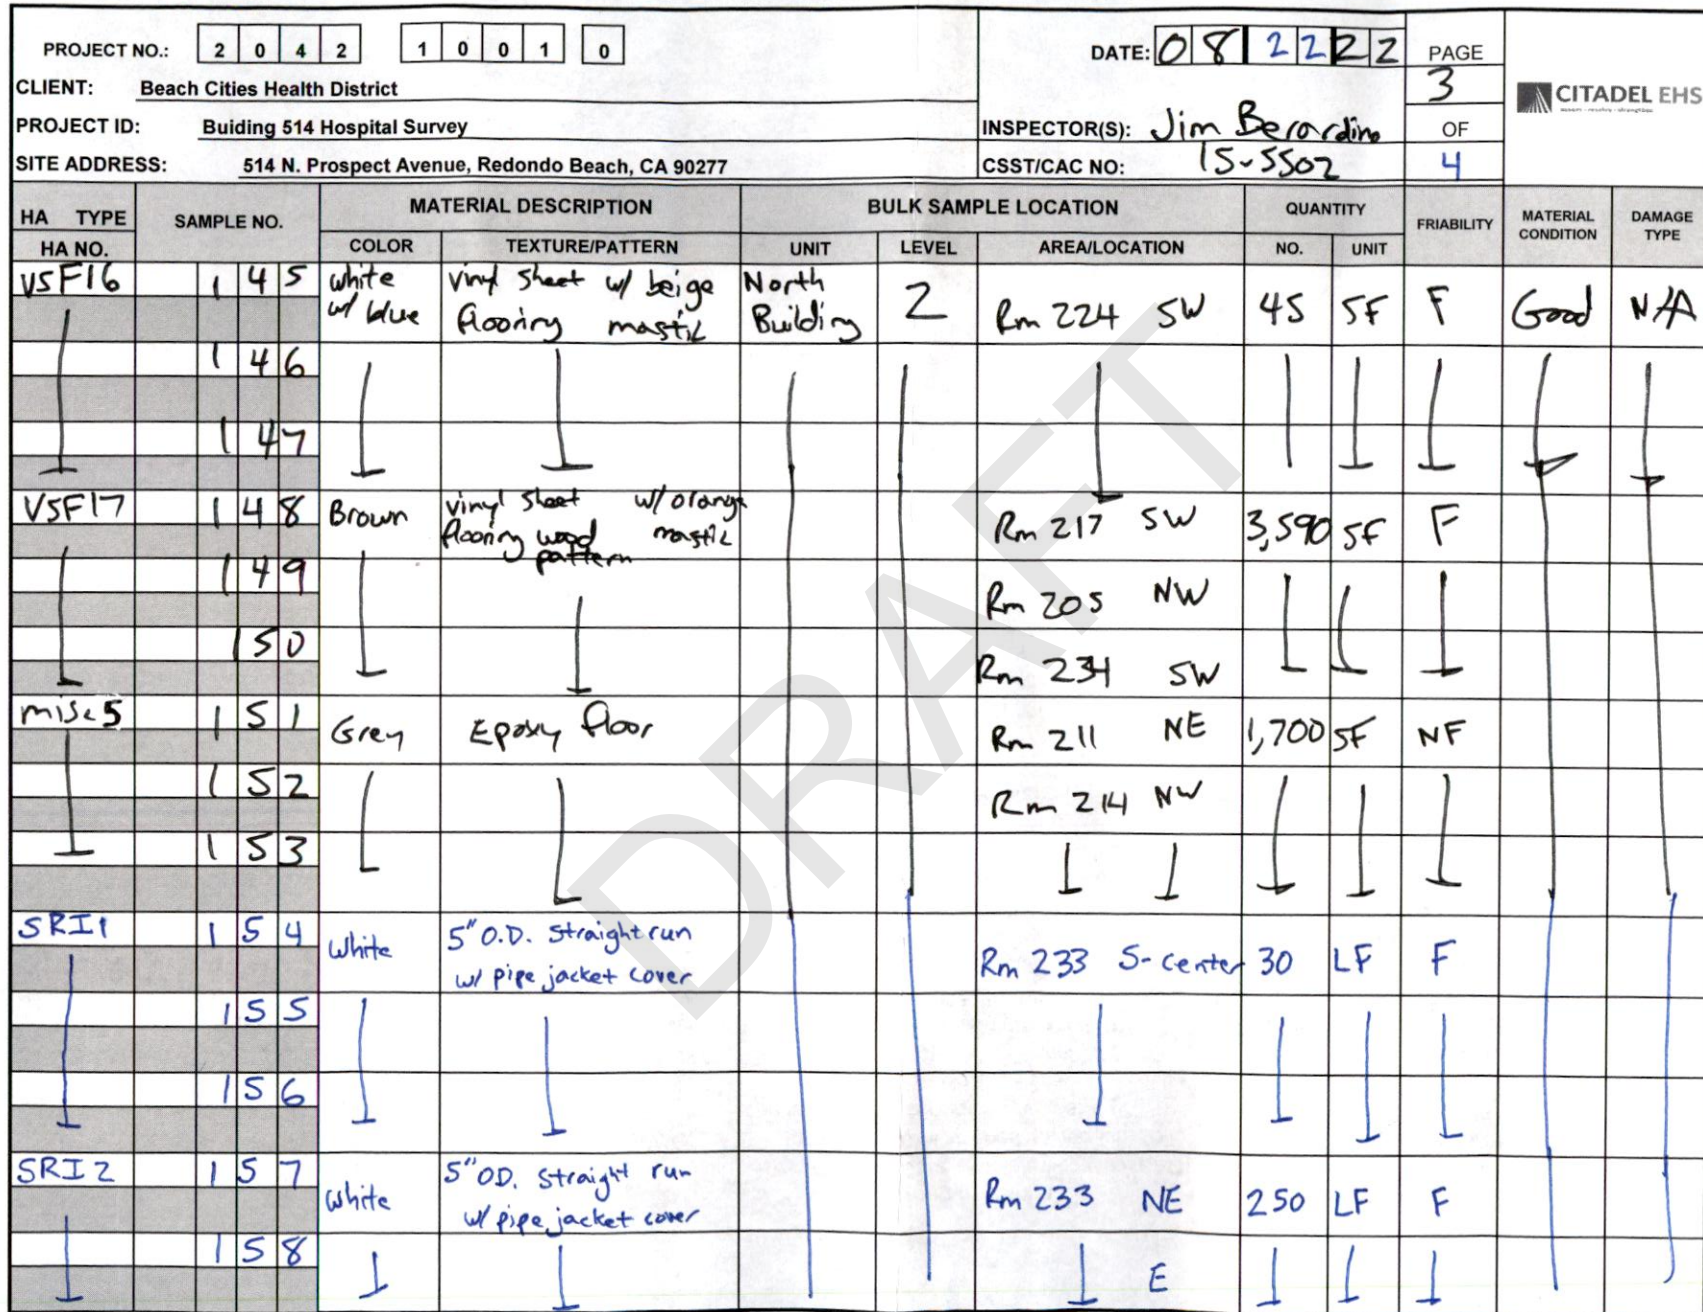 PROJECT NO.: 2 0 4 2 1 0 0 1 0
DATE: 0 8 2 2 2 2
PAGE
3
OF
4
CITADEL EHS
CLIENT: Beach Cities Health District
PROJECT ID: Buiding 514 Hospital Survey
INSPECTOR(S): Jim Berardino
SITE ADDRESS: 514 N. Prospect Avenue, Redondo Beach, CA 90277
CSST/CAC NO: 15-5502
HA TYPE SAMPLE NO. MATERIAL DESCRIPTION BULK SAMPLE LOCATION QUANTITY FRIABILITY MATERIAL CONDITION DAMAGE TYPE
HA NO. COLOR TEXTURE/PATTERN UNIT LEVEL AREA/LOCATION NO. UNIT
VSF16 1 4 5 white w/ blue vinyl sheet w/ beige flooring mastic North Building 2 Rm 224 SW 45 SF F Good N/A
1 4 6
1 4 7
VSF17 1 4 8 Brown vinyl sheet w/ orange flooring wood mastic pattern Rm 217 SW 3,590 SF F
1 4 9 Rm 205 NW
1 5 0 Rm 234 SW
misc5 1 5 1 Grey Epoxy floor Rm 211 NE 1,700 SF NF
1 5 2 Rm 214 NW
1 5 3
SRI1 1 5 4 white 5" O.D. Straight run w/ pipe jacket cover Rm 233 S-center 30 LF F
1 5 5
1 5 6
SRI2 1 5 7 white 5" OD. Straight run w/ pipe jacket cover Rm 233 NE 250 LF F
1 5 8 E
DRAFT